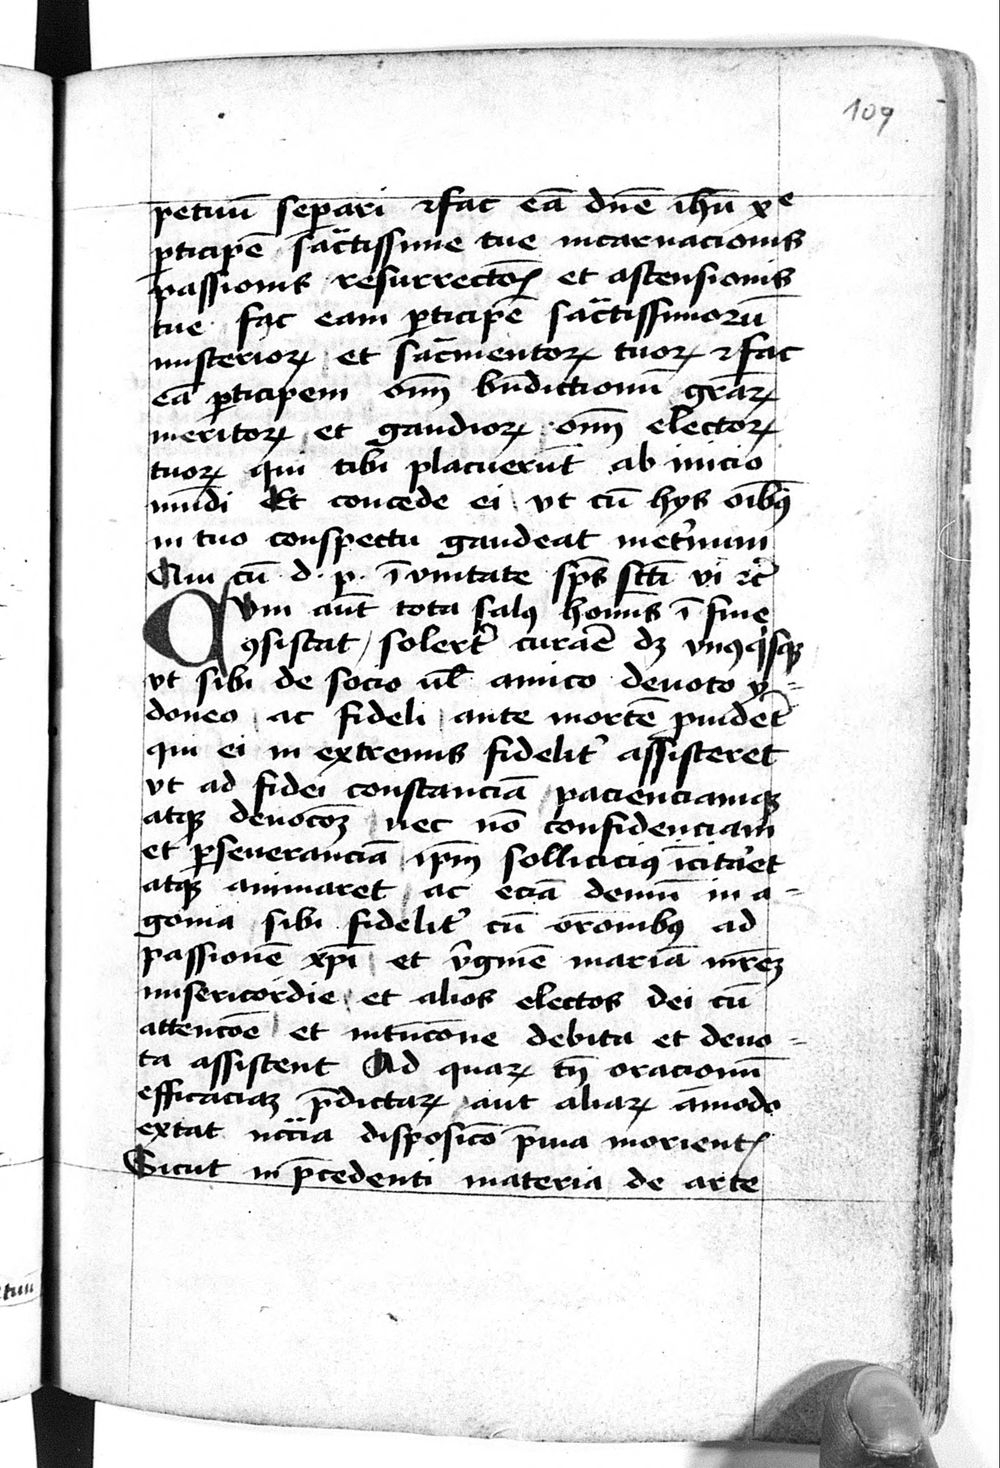 109
petuū separi ⁊ fac eā dnē ihū xᵉ
pticipē sāctissime tue incarnacionis
passionis resurrectōꝭ et ascensionis
tue fac eam pticipē sāctissimorū
misterioꝝ et sacmentoꝝ tuoꝝ ⁊ fac
eā pticipem oīm bn̄dictionū gr̄aꝝ
meritoꝝ et gaudioꝝ oīm electoꝝ
tuoꝝ qui tibi placuerūt ab inicio
mūdi Et concede ei vt cū hys oībꝰ
in tuo conspectu gaudeat inet'num
Qui cū d. p. ī vnitate sp̄s sct̄i vi ⁊c̄
Qvm aūt tota salꝰ homīs ī fine
ꝯsistat solert' curāē dꝫ vnꝰqͥsqꝫ
vt sibi de socio ul̄ amico deuoto y-
doneo ac fideli ante mortē puidet'
qui ei in extremis fidelit' assisteret
vt ad fidei constanciā pacienciamqꝫ
atqꝫ deuocōꝫ nec nō confidenciam
et pseueranciā ip̄m sollicitiꝰ īcita'et
atqꝫ animaret ac eciā demū in a-
gonia sibi fidelit' cū orōnibꝰ ad
passionē xp̄i et v'ginē mariā mr̄eꝫ
misericordie et alios electos dei cū
attencōe et intencōne debita et deuo-
ta assistent Ad quaꝝ tn̄ oracionū
efficaciaꝫ p̄dictaꝝ aut aliaꝝ āmodo
extat nēc̄cia disposicō p̄uia morientꝭ
Sicut in p̄cedenti materia de arte